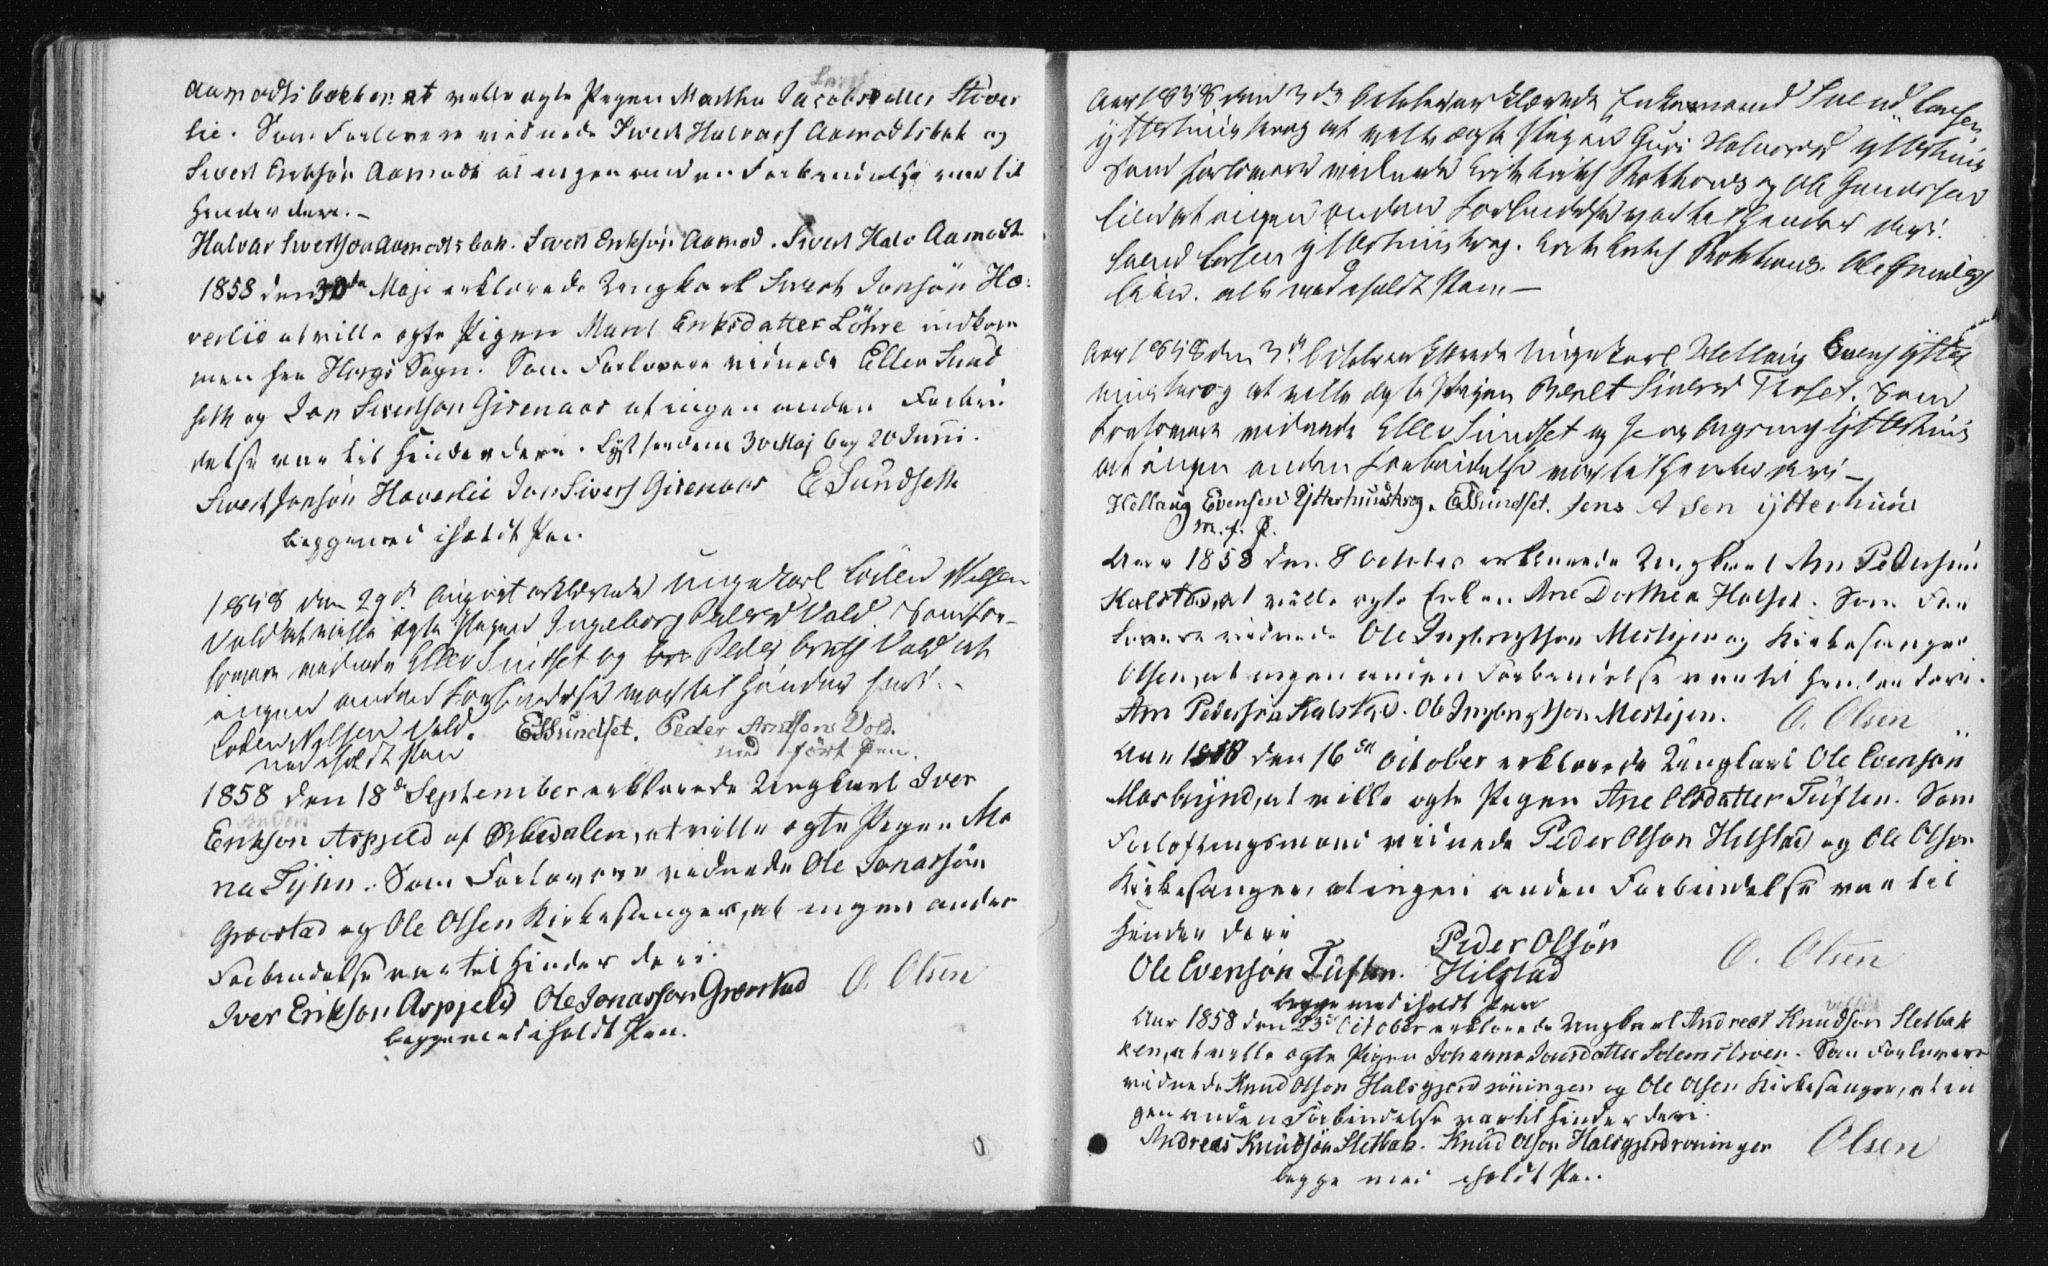 Aamodtsbakken at ville ægte Pigen Marthe Jacobsdatter Stöver
lie. Som Forlovere vidnede Sivert Halvors Aamodtsbak og
Sivert Eriksön Aamodt at ingen anden Forbindelse var til
Hinder deri.
Halvar Siverson Aamodtsbak. Sivert Eriksön Aamod. Sivert Halv Aamodt
1858 den 30de Maji erklærede Ungkarl Sivert Jonsön Ho:
verlie at ville ægte Pigen Marit Eriksdatter Löhre indkom
men fra Horgs Sogn. Som Forlovere vidnede Ellev Sund
seth og Jon Sivertson Gisenaas at ingen anden Forbin
delse var til Hinder deri. Lyst
30 Maj beg 20 Juni.
Sivert Jonsön Haaverlie Jon Sivers Gisenaas E Sundseth
begge med iholdt Pen.
1858 den 29de August erklærede Ungekarl Loden Nilsen
Vold at ville ægte Pigen Ingeborg Vold. Som For-
lovere vidnede Ellev Sundset og Peder Arnts Vold at
ingen anden Forbindelse var til Hinder heri.
Loden Nilsen Vold. ESundset. Peder Arntsens Vold.
med iholdt Pen med fört Pen.
1858 den 18de September erklærede Ungkarl Iver
Erikson Aspjeld af Orkedalen, at ville ægte Pigen Ma
na Tyhn. Som Forlovere vidnede Ole Jonassön
Gravstad og Ole Olsen Kirkesanger, at ingen anden
Forbindelse var til Hinder deri.
Iver Erikson Aspjeld Ole Jonasson Gravstad O. Olsen
begge med iholdt Pen.
Aar 1858 den 3de October erklærede Enkemand Svend Larsen
Ytterhuuskrog at ville ægte Pigen Guri Halvorsd Ytterhuus
Som Forlovere vidnede Erik Eriks Rokkones og Ole Gundersen
Lien at ingen anden Forbindelse var til Hinder deri.
Svend Larsen Ytterhuuskrog. Erik Eriks Rokkones. Ole Gunders
Lien. alle med iholdt Pen
Aar 1858 den 3de October erklærede Ungekarl Hellaug Evens Ytter
huuskrog at ville ægte Pigen Beret Siversd Troset. Som
Forlovere vidnede Ellev Sundset og Ytterhuus
at ingen anden Forbindelse var til Hinder deri
Hellaug Evensen Ytterhuuskrog. ESundset. Jens A sen Ytterhuus
m. f. P.
Aar 1858 den 8 October erklærede Ungkarl Arn Pedersön
Kalstad, at ville ægte Enken Ane Dorthea Halset. Som For
lovere vidnede Ole Ingebrigtson Mestejen og Kirkesanger
Olsen, at ingen anden Forbindelse var til Hinder deri.
Arn Pedersön Kalstad. Ole Ingbrigtson Mestejen. O. Olsen
Aar 1858 den 16de October erklærede Ungkarl Ole Evensön
Mosbrynd, at ville ægte Pigen Ane Olsdatter Tuften. Som
Forlovningsmænd vidnede Peder Olson Hilstad og Ole Olsen
Kirkesanger, at ingen anden Forbindelse var til
Hinder deri
Ole Evensön Tuften. Peder Olsön Hilstad O. Olsen
begge med iholdt Pen
Aar 1858 den 23de October erklærede Ungkarl Andreas Knudson Sletbak
ken, at ville ægte Pigen Johanna Jonsdatter Solemslien. Som Forlovere
vidnede Knud Olson Halsgjerdröningen og Ole Olsen Kirkesanger, at in
gen anden Forbindelse var til Hinder deri.
Andreas Knudsön Sletbak. Knud Olson Halsgjerdröningen Olsen
begge med iholdt Pen.